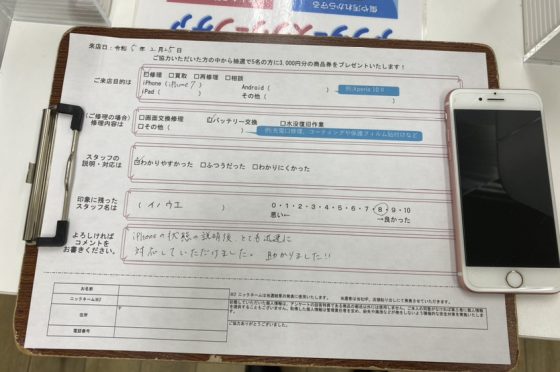 来店日：令和 5 年 2 月 25 日
ご協力いただいた方の中から抽選で5名の方に3,000円分の商品券をプレゼントいたします！
ご来店目的は
☑修理 □買取 □再修理 □相談
iPhone (iPhone7) Android ( )
iPad ( ) その他 ( )
例:Xperia 10Ⅱ
(ご修理の場合)
修理内容は
□画面交換修理 ☑バッテリー交換 □水没復旧作業
□その他 ( )
例:充電口修理、コーティングや保護フィルム貼付けなど
スタッフの
説明・対応は
☑わかりやすかった □ふつうだった □わかりにくかった
印象に残った
スタッフ名は
( イノウエ )
0・1・2・3・4・5・6・7・8・9・10
悪い← →良かった
よろしければ
コメントを
お書きください。
iPhoneの状態の説明後、とても迅速に
対応していただけました。助かりました!!
お名前
ニックネーム※2
住所
〒
電話番号
ご協力ありがとうございました。